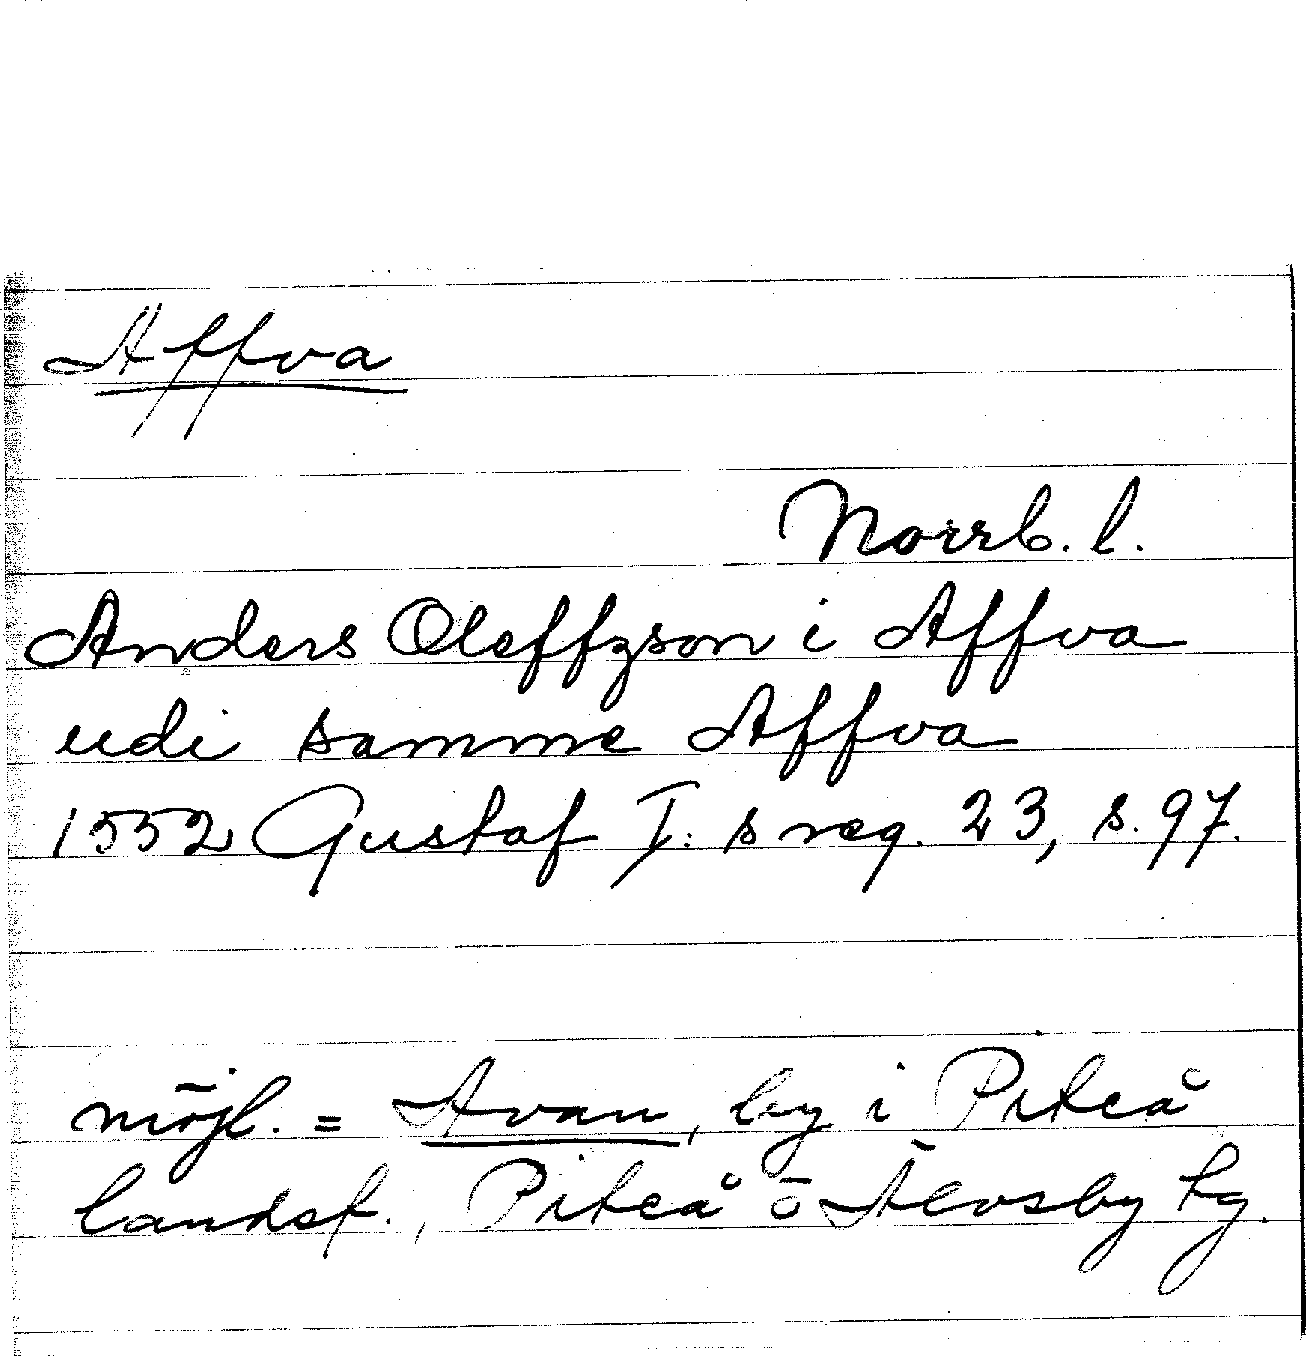 Affva
Norrb. l.
Anders Oleffzson i Affva
udi samme Affva
1552 Gustaf I:s reg. 23, s. 97.
möjl. = Avan, by i Piteå
landsf., Piteå o Älvsby tg.